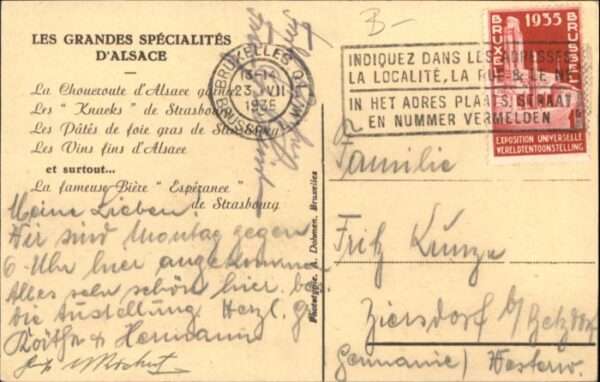 LES GRANDES SPÉCIALITÉS
D'ALSACE
La Choucroute d'Alsace
Les "Knacks" de Strasbourg
Les Pâtés de foie gras de Strasbourg
Les Vins fins d'Alsace
et surtout...
La fameuse Bière "Espérance"
de Strasbourg
Meine Lieben!
Wir sind Montag gegen
6 Uhr hier angekommen
Alles sehr schön hier. bes.
die Ausstellung. Herzl. Gr.
Käthe & Hermann
Phototypie. A. Dohmen. Bruxelles
B-
BRUXELLES
13-14
23 VII
1935
BRUSSEL
INDIQUEZ DANS LES ADRESSES
LA LOCALITÉ, LA RUE & LE No
IN HET ADRES PLAATS, STRAAT
EN NUMMER VERMELDEN
1935
BRUXELLES
BRUSSEL
EXPOSITION UNIVERSELLE
WERELDTENTOONSTELLING
Familie
Fritz Kunze
Ziersdorf b/ Betzdorf
Germanie) Westerw.